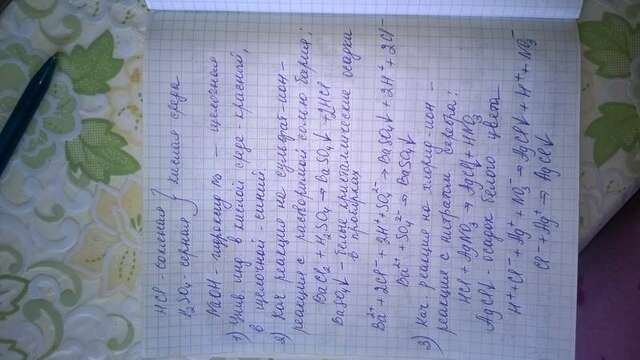 HCl - соляная } кислая среда
H₂SO₄ серная
NaOH - гидроксид - щелочная
1) Унив. инд в кислой среде - красный,
в щелочной - синий
2) Кач реакция на сульфат-ион -
реакция с растворимой солью бария:
BaCl₂ + H₂SO₄ → BaSO₄↓ + 2HCl
BaSO₄↓ - белый кристаллический осадок
в пробирках
Ba²⁺ + 2Cl⁻ + 2H⁺ + SO₄²⁻ → BaSO₄↓ + 2H⁺ + 2Cl⁻
Ba²⁺ + SO₄²⁻ → BaSO₄↓
3) Кач реакция на хлорид-ион -
реакция с нитратом серебра:
HCl + AgNO₃ → AgCl↓ + HNO₃
AgCl↓ - осадок белого цвета
H⁺ + Cl⁻ + Ag⁺ + NO₃⁻ → AgCl↓ + H⁺ + NO₃⁻
Cl⁻ + Ag⁺ → AgCl↓